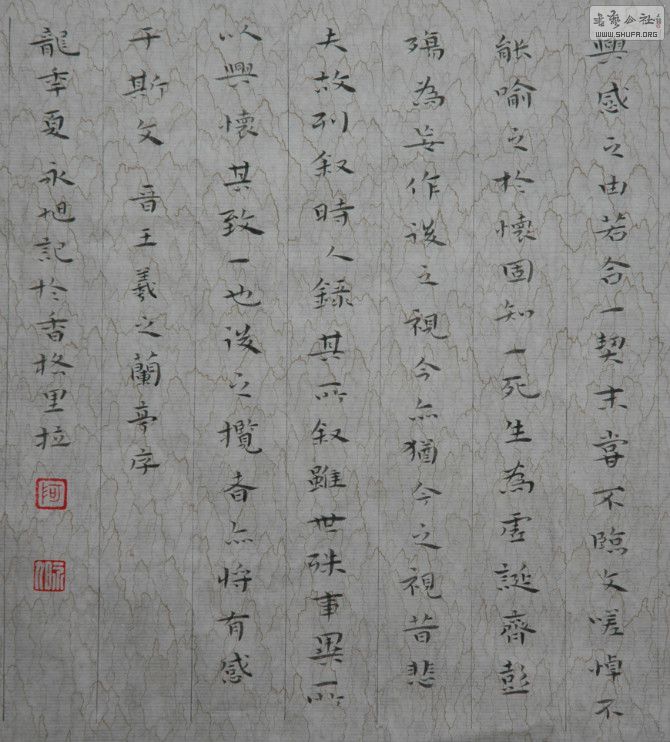 興感之由若合一契未嘗不臨文嗟悼不
能喻之於懷固知一死生為虛誕齊彭
殤為妄作後之視今亦猶今之視昔悲
夫故列叙時人錄其所叙雖世殊事異所
以興懷其致一也後之攬者亦將有感
于斯文 晉王羲之蘭亭序
龍年夏永旭記於香格里拉
书艺公社
www.SHUFA.ORG